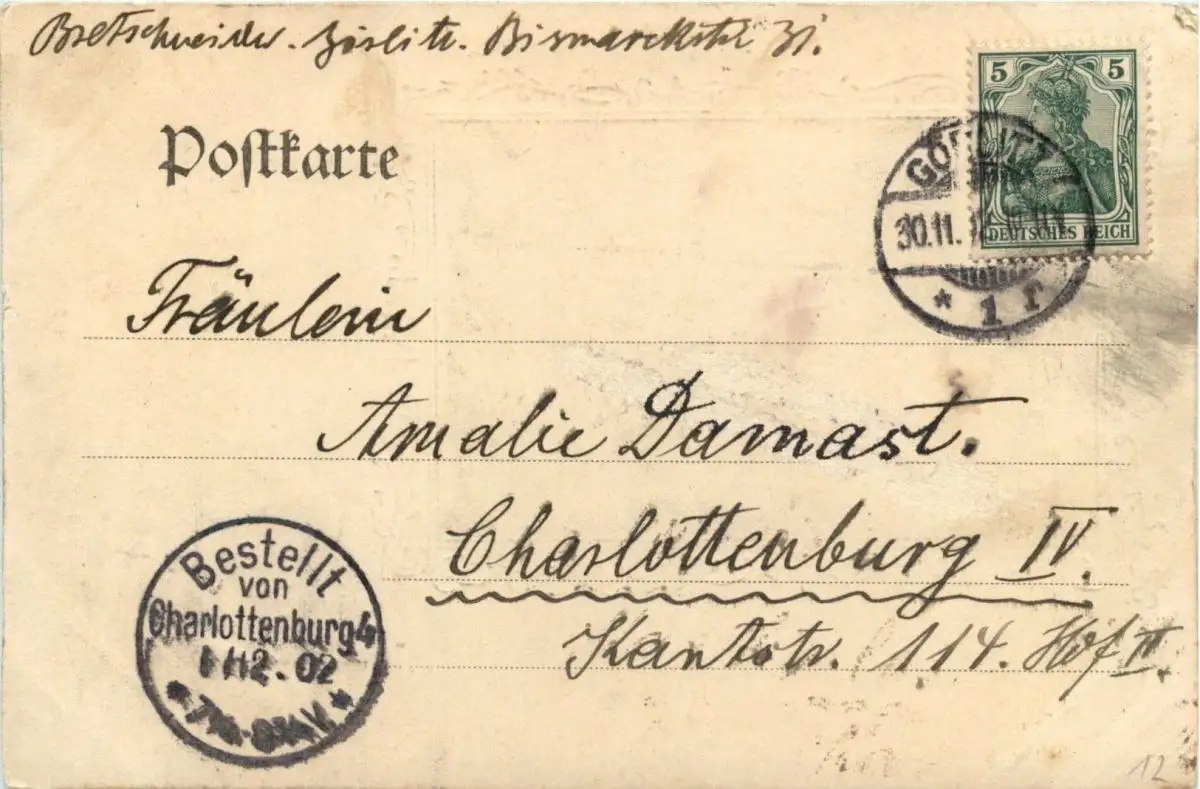 Bretschneider. Görlitz. Bismarckstr. 31.
5 5
Postkarte
GÖRLITZ
30.11.
* 1 r
DEUTSCHES REICH
Fräulein
Amalie Damast.
Charlottenburg IV.
Kantstr. 114. Hof II.
Bestellt
von
Charlottenburg 4
1 12.02
12